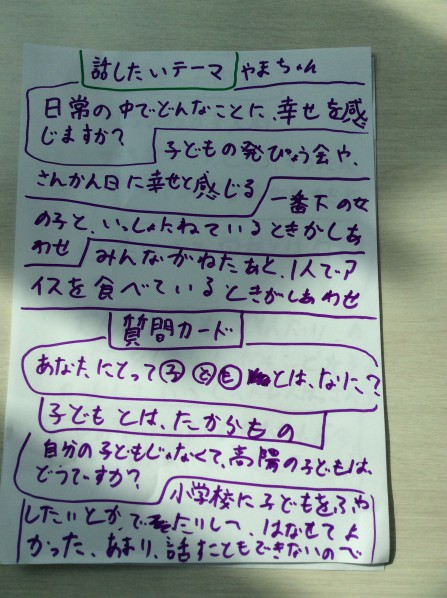 話したいテーマ やまちゃん
日常の中でどんなことに、幸せを感
じますか?
子どもの発ぴょう会や、
さんかん日に幸せと感じる
一番下の女
の子と、いっしょにねているときがしあ
わせ
みんながねたあと、1人でア
イスを食べているときがしあわせ
質問カード
あなたにとって子どもとは、なに?
子どもとは、たからもの
自分の子どもじゃなくて、高陽の子どもは、
どうですか?
小学校に子どもをふや
したいとか、でたりして、はなせてよ
かった、あまり、話すこともできないので